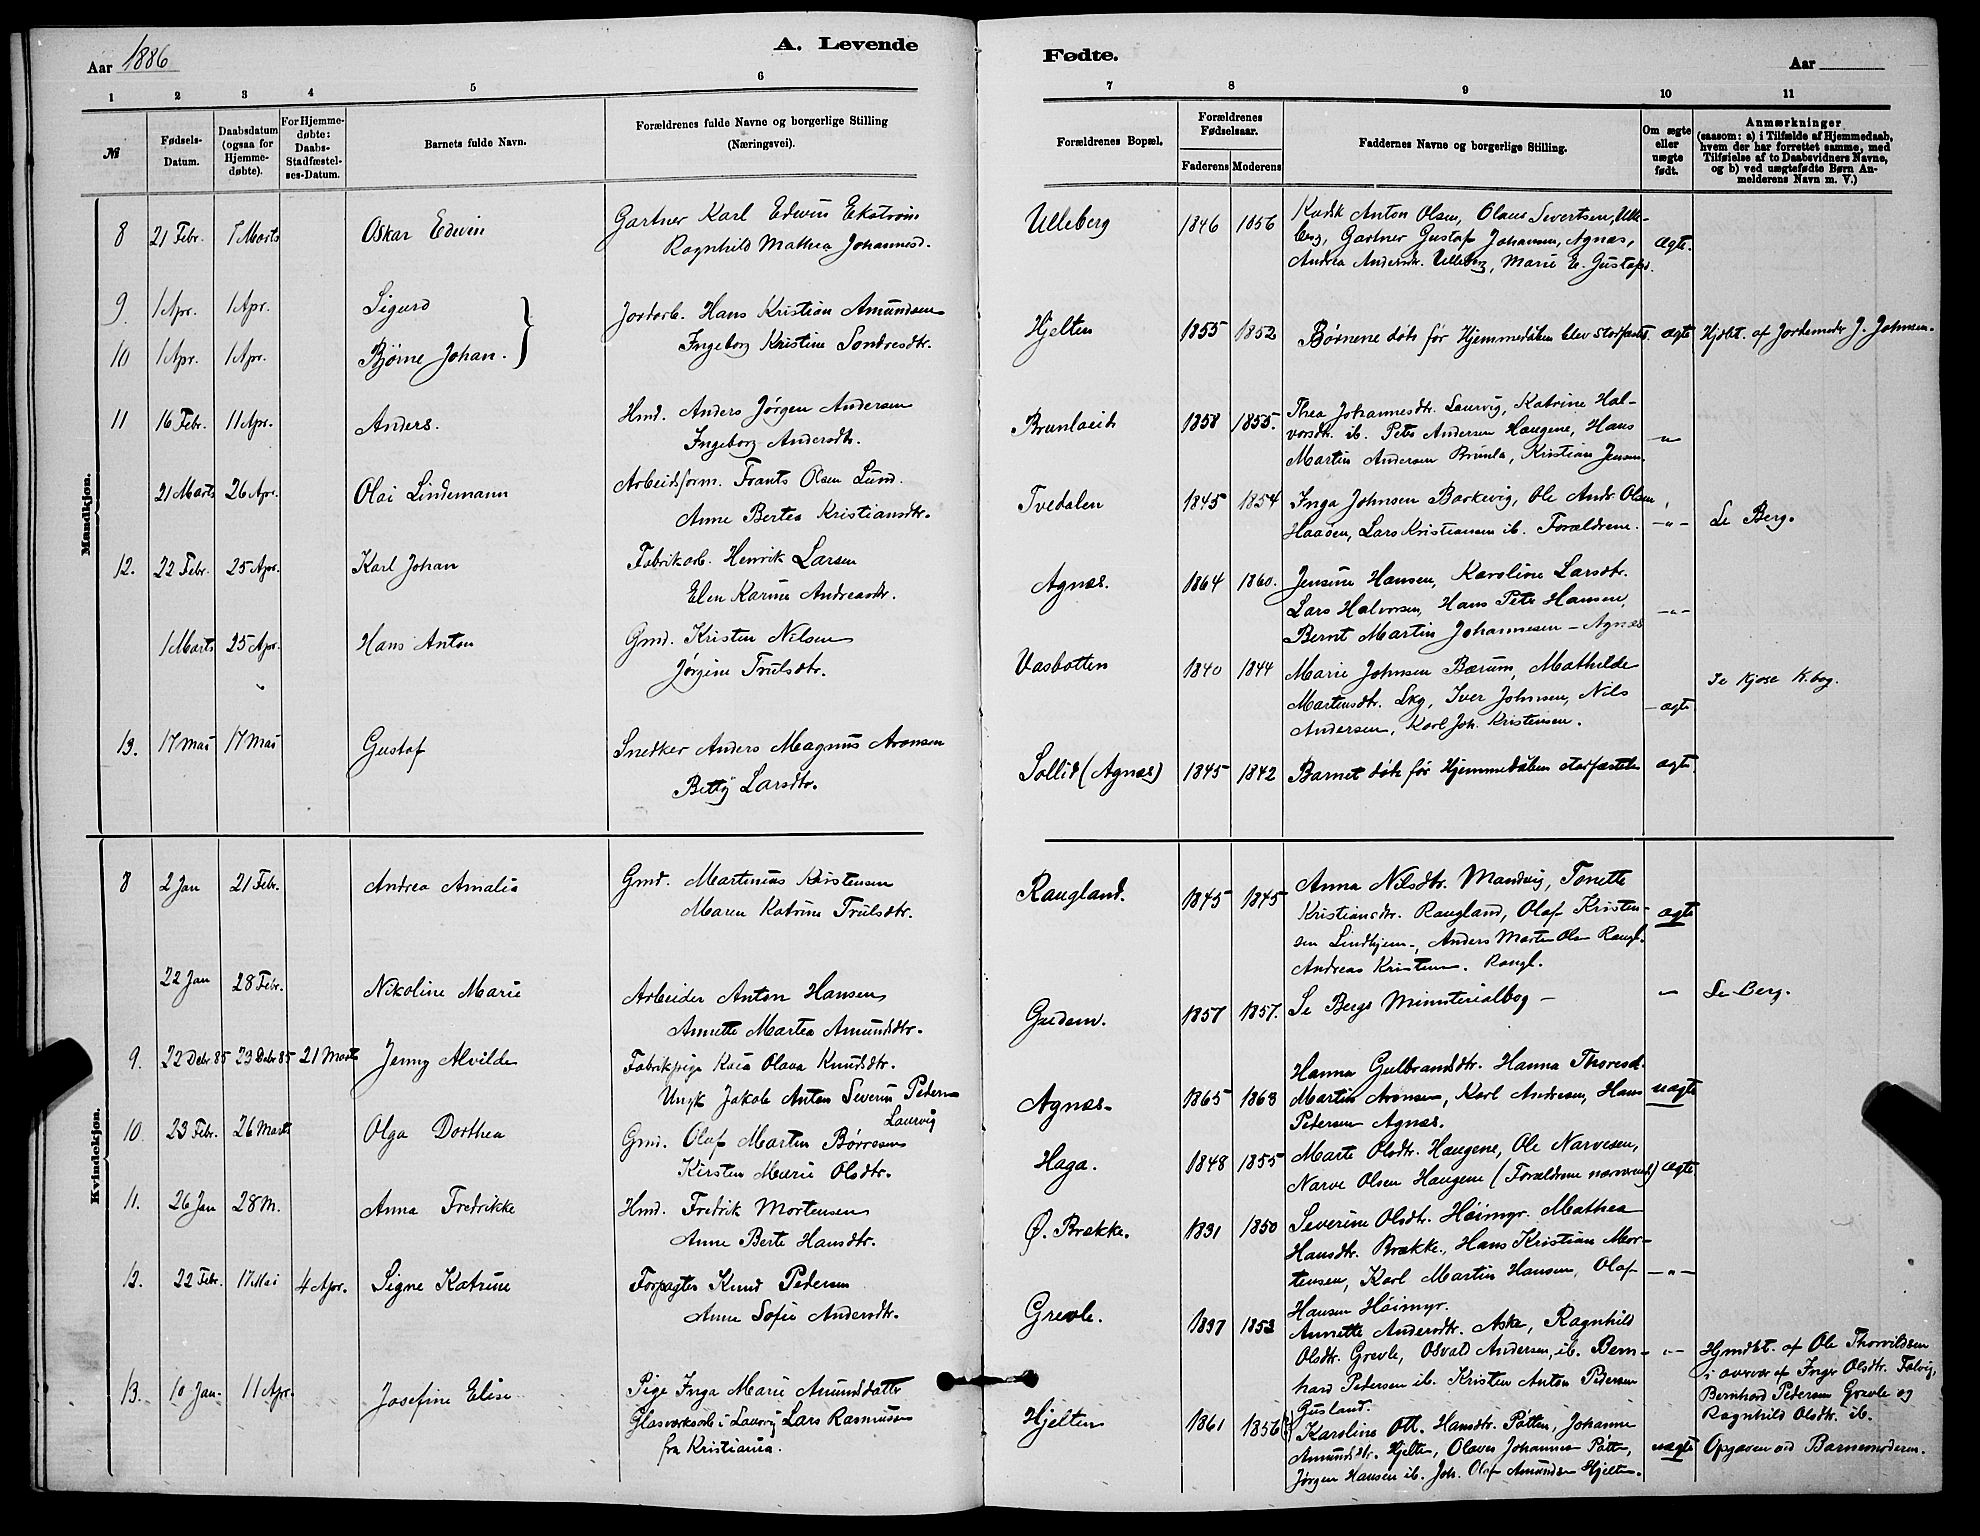 Aar 1886
A. Levende
Fødte.
Aar
1 2 3 4 5 6 7 8 9 10 11
№
Fødsels-
Datum.
Daabsdatum
(ogsaa for
Hjemme-
døbte).
For Hjemme-
døbte:
Daabs-
Stadfæstel-
ses-Datum.
Barnets fulde Navn.
Forældrenes fulde Navne og borgerlige Stilling
(Næringsvei).
Forældrenes Bopæl.
Forældrenes
Fødselsaar.
Faderens Moderens
Faddernes Navne og borgerlige Stilling.
Om ægte
eller
uægte
født.
Anmærkninger
(saasom: a) i Tilfælde af Hjemmedaab,
hvem der har forrettet samme, med
Tilføielse af to Daabsvidners Navne,
og b) ved uægtefødte Børn An-
melderens Navn m. V.)
Mandkjøn.
8 21 Febr. 7 Marts Oskar Edwin
Gartner Karl Edwin Ekstrøm
Ragnhild Mathea Johannesd.
Ulleberg 1846 1856
Anton Olsen, Olaus Severtsen, Ulle-
berg, Gartner Gustaf Johansen, Agnæs,
Andrea Andersdr. Ulleberg, Marie E. Gustafsd.
ægte.
9. 1 Apr. 1 Apr. Sigurd
10 1 Apr. 1 Apr. Bjørne Johan.
Jordarb. Hans Kristian Amundsen
Ingeborg Kristine Sondresdtr.
Hjelten 1855 1852 Børnene døde før Hjemmedåben blev stadfæstet ægte Hjdbt. af Jordemodr J. Johnsen.
11 16 Febr. 11 Apr. Anders.
Hmd. Anders Jørgen Andersen
Ingeborg Andersdtr.
Brunlaeid 1858 1855.
Thea Johannesdtr. Laurvig, Katrine Hal-
vorsdtr. ib. Peter Andersen Haugene, Hans
Martin Andersen Brunla, Kristian Jensen.
— " —
21 Marts 26 Apr. Olai Lindemann
Arbeidsform. Frants Olsen Lund
Anne Bertea Kristiansdtr.
Tvedalen 1845 1854
Inga Johnsen Barkevig, Ole Andr. Olsen
Haaøen, Lars Kristiansen ib. Forældrene.
— " — Se Berg.
12. 22 Febr. 25 Apr. Karl Johan
Fabrikarb. Henrik Larsen
Elen Karine Andreasdr.
Agnæs. 1864 1860.
Jensine Hansen, Karoline Larsdtr.
Lars Halvorsen, Hans Peter Hansen,
Bernt Martin Johannesen - Agnæs
— " —
1 Marts 25 Apr. Hans Anton
Gmd. Kristen Nilsen
Jørgine Trulsdtr.
Vasbotten 1840 1844
Marie Johnsen Bærum, Mathilde
Martensdtr. Lkg, Iver Johnsen, Nils
Andersen, Karl Joh. Kristensen.
ægte Se Kjose K.bog.
13. 17 Mai 17 Mai Gustaf
Snedker Anders Magnus Aronsen
Betty Larsdtr.
Sollid (Agnæs) 1845 1842 Barnet døde før Hjemmedåben stadfæstet ægte
Kvindekjøn.
8 2 Jan 21 Febr. Andrea Amalia
Gmd. Martinius Kristensen
Maren Katrine Trulsdtr.
Raugland. 1845 1845
Anna Nilsdtr. Mandvig, Tonette
Kristiansdtr. Raugland, Olaf Kristen-
sen Lindhjem., Anders Martin Olsen Raugl.
Andreas Kristensen. Raugl.
ægte
22 Jan 28 Febr. Nikoline Marie
Arbeider Anton Hansen
Annette Martea Amundsdtr.
Gredem. 1857 1857. Se Bergs Ministerialbog — " Se Berg.
9. 22 Debr 85 23 Debr 85 21 Marts Jenny Alvilde
Fabrikpige Kaia Olava Knudsdtr.
Ungk Jakob Anton Severin Pedersen
Laurvig
Agnæs. 1865 1868
Hanna Gulbrandsdtr. Hanna Thoresd.
Martin Aronsen, Karl Andresen, Hans
Pedersen Agnæs.
uægte
10. 23 Febr. 26 Marts Olga Dorthea
Gmd. Olaf Martin Børresen
Kirsten Marie Olsdtr.
Haga. 1848 1855
Marte Olsdtr. Haugene, Ole Narvesen,
Narve Olsen Haugene (Forældrene nærværende) ægte
11. 26 Jan 28 M. Anna Fredrikke
Hmd. Fredrik Mortensen
Anne Berte Hansdtr.
Ø. Brække. 1831 1850
Severine Olsdtr. Høimyr. Mathea
Hansdtr. Brække, Hans Kristian Mor-
tensen, Karl Martin Hansen, Olaf
Hansen Høimyr.
— " —
12. 22 Febr. 17 Mai 4 Apr. Signe Katrine
Forpagter Knud Pedersen
Anne Sofie Andersdtr.
Grevle. 1837 1853
Annette Andersdtr. Aske, Ragnhild
Olsdtr. Grevle, Osvald Andersen, ib. Bern-
hard Pedersen ib. Kristen Anton Pedersen
Gusland.
— " —
Hjmdbt. af Ole Thorvildsen
i overvær af Inger Olsdtr. Falvig,
Bernhard Pedersen Grevle og
Ragnhild Olsdtr. ib.
13. 10 Jan. 11 Apr. Josefine Elise
Pige Inga Marie Amundsdatter
Glasværksarb. i Laurvig Lars Rasmussen
fra Kristiania.
Hjelten 1861 1856
Karoline Ott. Hansdtr. Pøtten, Johanne
Amundsdtr. Hjelten, Olaves Johannes. Pøtten,
Jørgen Hansen ib. Joh. Olaf Amundsen Hjelten.
uægte Opgaven ved Barnemoderen.